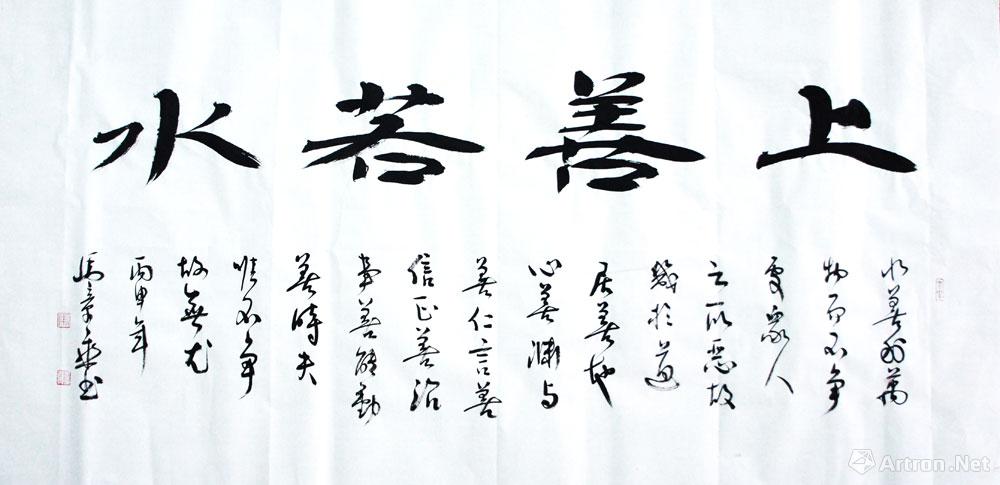 上善若水
水善利萬
物而不争
處眾人
之所惡故
幾於道
居善地
心善渊与
善仁言善
信正善治
事善能動
善時夫
唯不争
故無尤
丙申年
馬章乘书
Artron.Net